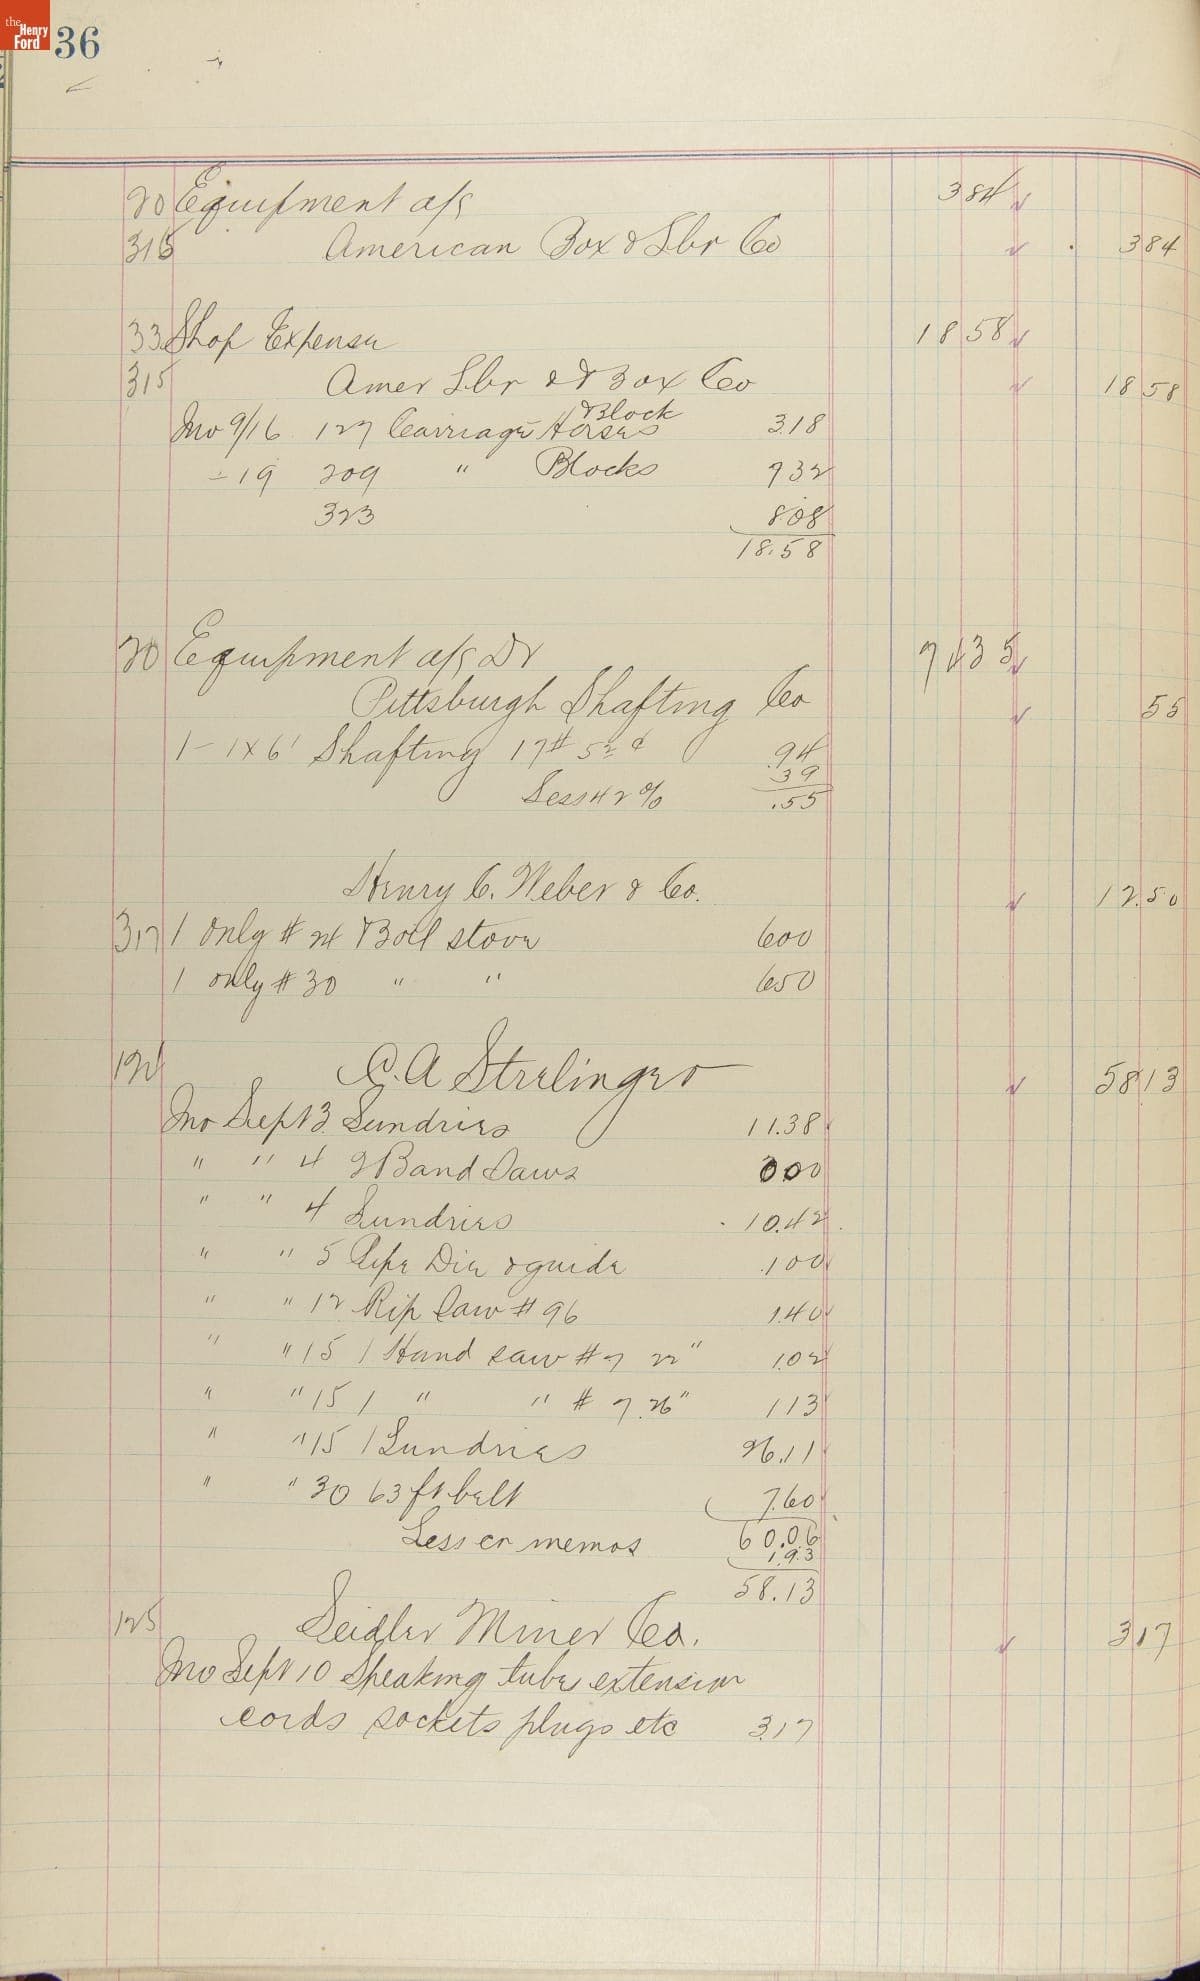 the Henry Ford
36
20 Equipment a/c 384
315 American Box & Lbr Co 384
33 Shop Expense 1858
315 Amer Lbr & Box Co 1858
Inv 9/16 127 Carriage Block Horses 3.18
- 19 209 " Blocks 732
323 8.08
18.58
20 Equipment a/c Dr 7435
Pittsburgh Shafting Co 55
1 - 1x6' Shafting 17# 5½ ¢ .94
39
Less 42% .55
Henry C. Weber & Co. 12.50
317 1 only # 24 Boil stove 600
1 only # 30 " " 650
C. A Strelinger 5813
Inv Sept 3 Sundries 11.38
" " 4 2 Band Saws 000
" " 4 Sundries 10.42
" " 5 Pipe Die & guide 100
" " 12 Rip Saw # 96 1.40
" " 15 1 Hand saw # 7 22" 1.02
" " 15 1 " " # 7. 26" 113
" " 15 1 Sundries 26.11
" " 30 63 ft belt 7.60
60.06
Less cr memos 1.93
58.13
125 Seidler Miner Co. 317
Inv Sept 10 Speaking tube extension
cords sockets plugs etc 3.17